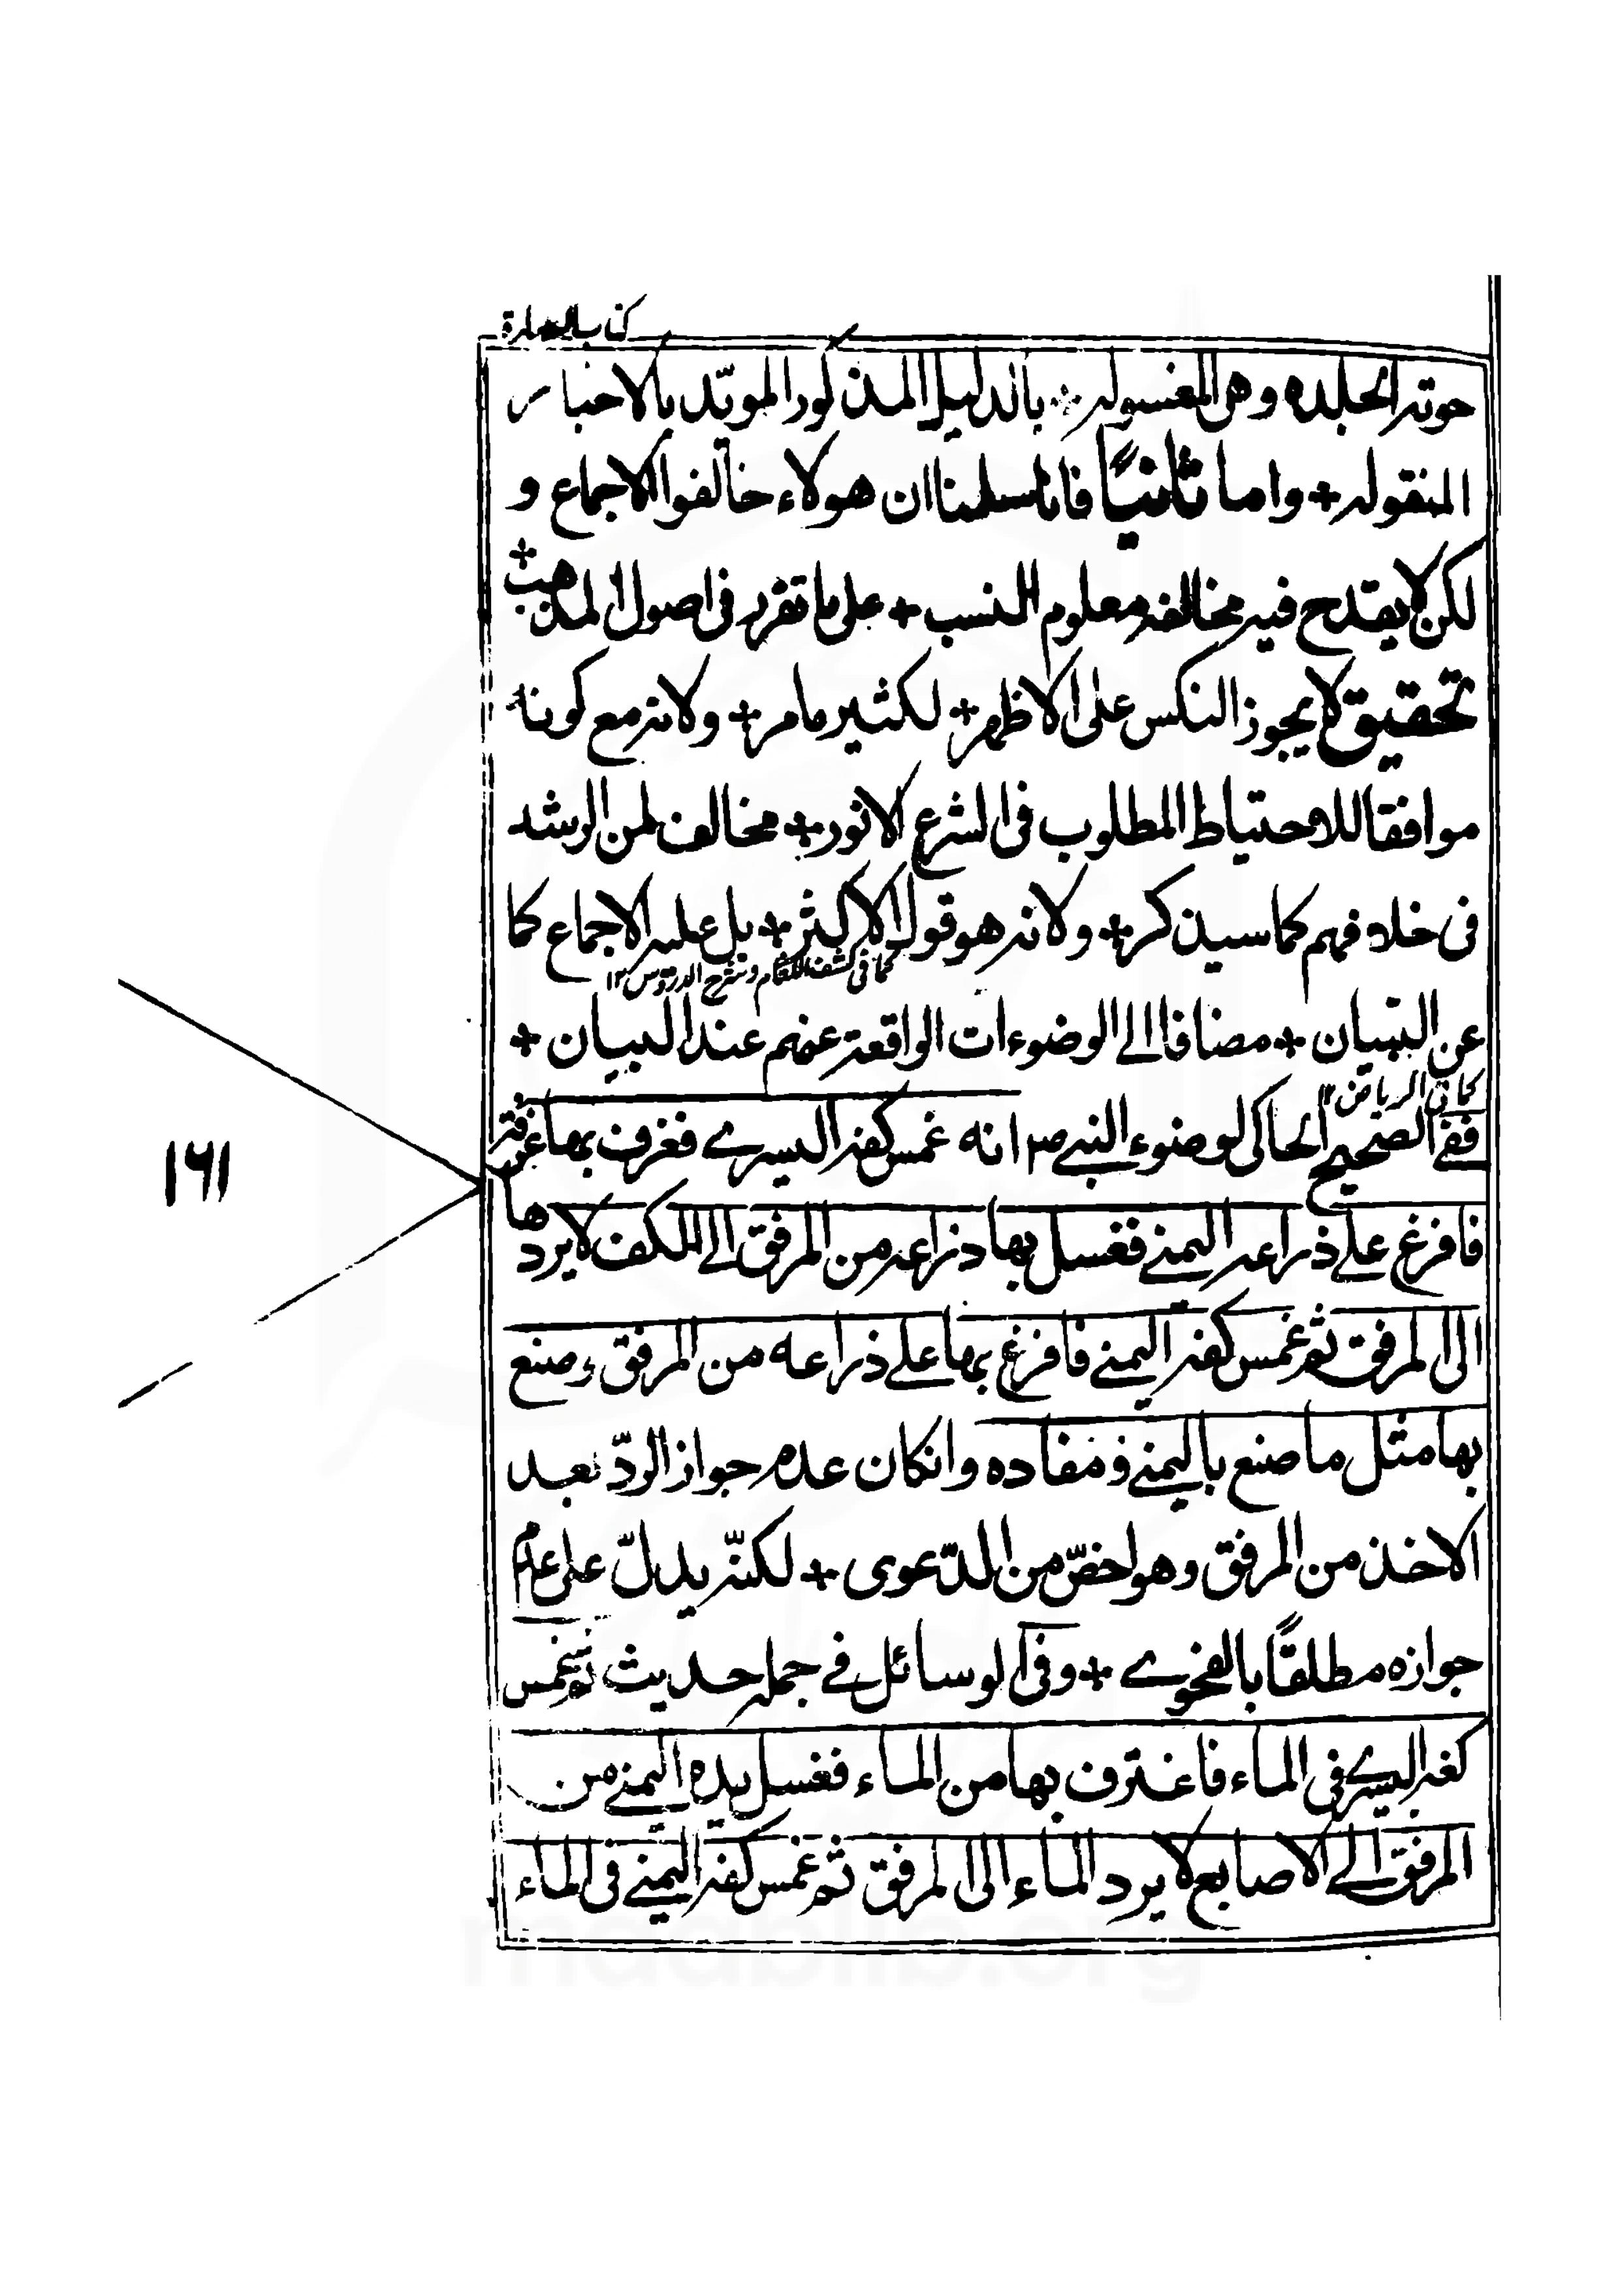 كتاب الطهارة
حوته الجلده وهل المغسوله + بالدليل المذكور المويّد بالاخبار
المنقوله + واما ثانيًا فانا سلمنا ان هولاء خالفوا الاجماع و
لكن لا يقدح فيه مخالفه معلوم النسب + على ما تقرر فى اصول المذهب +
تحقيق لا يجوز النكس على الاظهر + لكثير مامر + ولانه مع كونه
موافقا للاحتياط المطلوب فى الشرع الانور + مخالف لمن الرشد
فى خلافهم كما سيذكر + ولانه هو قول الاكثر + بل عليه الاجماع كما
كما فى كشف اللثام وشرح الدروس ١٢
عن التبيان + مضافا الى الوضوءات الواقعة عنهم عند البيان +
كما فى الرياض ١٢
ففے الصحيح الحاكى لوضوء النبے ص انه غمس كفه اليسرے فغرف بها غرفة
فافرغ علے ذراعه اليمنے فغسل بها ذراعه من المرفق الے الكف لا يردها
الى المرفق ثم غمس كفه اليمنے فافرغ بها علے ذراعه من المرفق وصنع
بها مثل ما صنع باليمنے ومفاده وانكان عدم جواز الردّ بعد
الاخذ من المرفق وهو اخصّ من الدّعوى + لكنّه يدلّ على عدم
جوازه مطلقًا بالفحوے + وفى الوسائل فے جمله حديث ثم غمس
كفه اليسرے فى الماء فاغترف بها من الماء فغسل يده اليمنے من
المرفق الے الاصابع لا يرد الماء الى المرفق ثم غمس كفه اليمنے فى الماء
١٦١
maablib.org